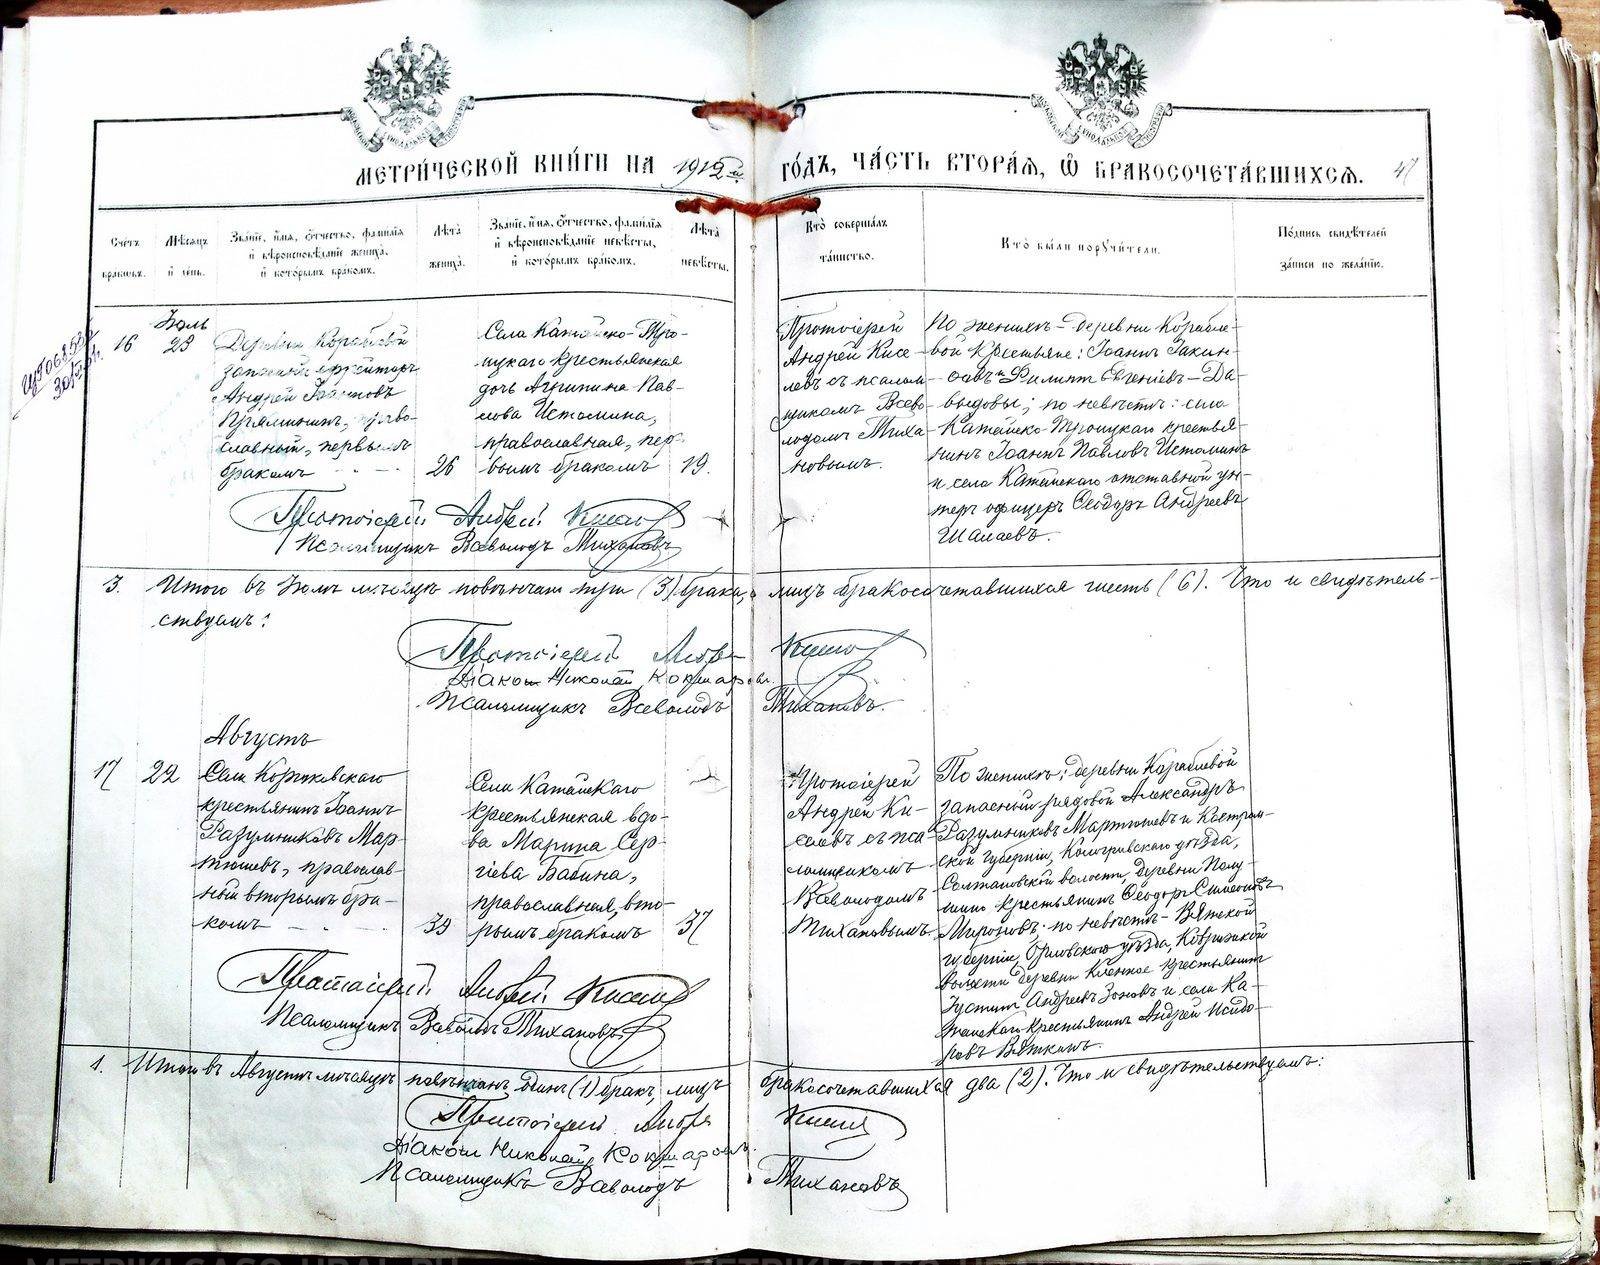 МЕТРИ́ЧЕСКОЙ КНИ́ГИ НА 1912й ГО́ДЪ, ЧА́СТЬ ВТОРА́Я, Ѿ БРАКОСОЧЕТА́ВШИХСЯ. 47
Счетъ браковъ.
Мѣсяцъ и день.
Званіе, имя, отчество, фамилія и вѣроисповѣданіе жениха, и которымъ бракомъ.
Лѣта жениха.
Званіе, имя, отчество, фамилія и вѣроисповѣданіе невѣсты, и которымъ бракомъ.
Лѣта невѣсты.
Кто совершалъ таинство.
Кто были поручители.
Подпись свидѣтелей записи по желанію.
16
Іюль
23
Деревни Кораблевой
запасный ефрейторъ
Андрей Іоанновъ
Прямининъ, право-
славный, первымъ
бракомъ
26
Села Катайско-Тро-
ицкаго крестьянская
дочь Агрипина Пав-
лова Истомина,
православная, пер-
вымъ бракомъ
19.
Протоіерей
Андрей Кисе-
левъ съ псалом-
щикомъ Всево-
лодомъ Тиха-
новымъ.
По женихѣ - деревни Корабле-
вой крестьяне: Іоаннъ Іакин-
ѳовъ и Филиппъ Евгеніевъ - Да-
выдовы; по невѣстѣ: села
Катайско-Троицкаго крестья-
нинъ Іоаннъ Павловъ Истоминъ
и села Катайскаго отставной ун-
теръ офицеръ Ѳеодоръ Андреевъ
Шалаевъ.
Протоіерей Андрей Киселевъ
Псаломщикъ Всеволодъ Тихановъ
3. Итого въ Іюлѣ мѣсяцѣ повѣнчано три (3) брака, а лицъ бракосочетавшихся шесть (6). Что и свидѣтель-
ствуемъ:
Протоіерей Андрей Киселевъ
Діаконъ Николай Кокшаровъ.
Псаломщикъ Всеволодъ Тихановъ.
Августъ
17
22
Села
крестьянинъ Іоаннъ
Разумниковъ Мар-
тюшевъ, православ-
ный вторымъ бра-
комъ
39
Села Катайскаго
крестьянская вдо-
ва Марина Сер-
гіева Бабина,
православная, вто-
рымъ бракомъ
37
Протоіерей
Андрей Ки-
селевъ съ пса-
ломщикомъ
Всеволодомъ
Тихановымъ.
По женихѣ: деревни Кораблевой
запасный рядовой Александръ
Разумниковъ Мартюшевъ и Костром-
ской губерніи, Кологривскаго уѣзда,
волости, деревни
крестьянинъ Ѳеодоръ Симеоновъ
Мироновъ; по невѣстѣ - Вятской
губерніи, Орловскаго уѣзда,
волости деревни крестьянинъ
Іустинъ Андреевъ Зоновъ и села Ка-
тайскаго крестьянинъ Андрей Исидо-
ровъ Вяткинъ.
Протоіерей Андрей Киселевъ
Псаломщикъ Всеволодъ Тихановъ.
1. Итого въ Августѣ мѣсяцѣ повѣнчанъ одинъ (1) бракъ, лицъ бракосочетавшихся два (2). Что и свидѣтельствуемъ:
Протоіерей Андрей Киселевъ
Діаконъ Николай Кокшаровъ.
Псаломщикъ Всеволодъ Тихановъ